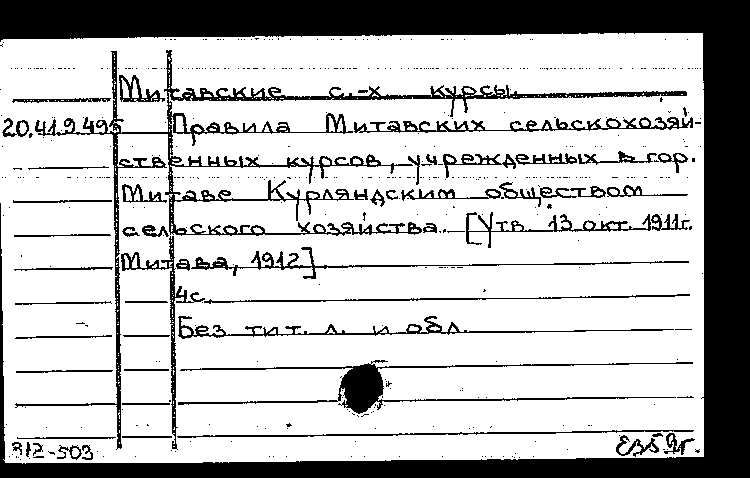 Митавские с.-х курсы.
20.41.9.495 Правила Митавских сельскохозяй-
ственных курсов, учрежденных в гор.
Митаве Курляндским обществом
сельского хозяйства. [Утв. 13 окт. 1911г.
Митава, 1912].
4с.
Без тит. л. и обл.
312-503